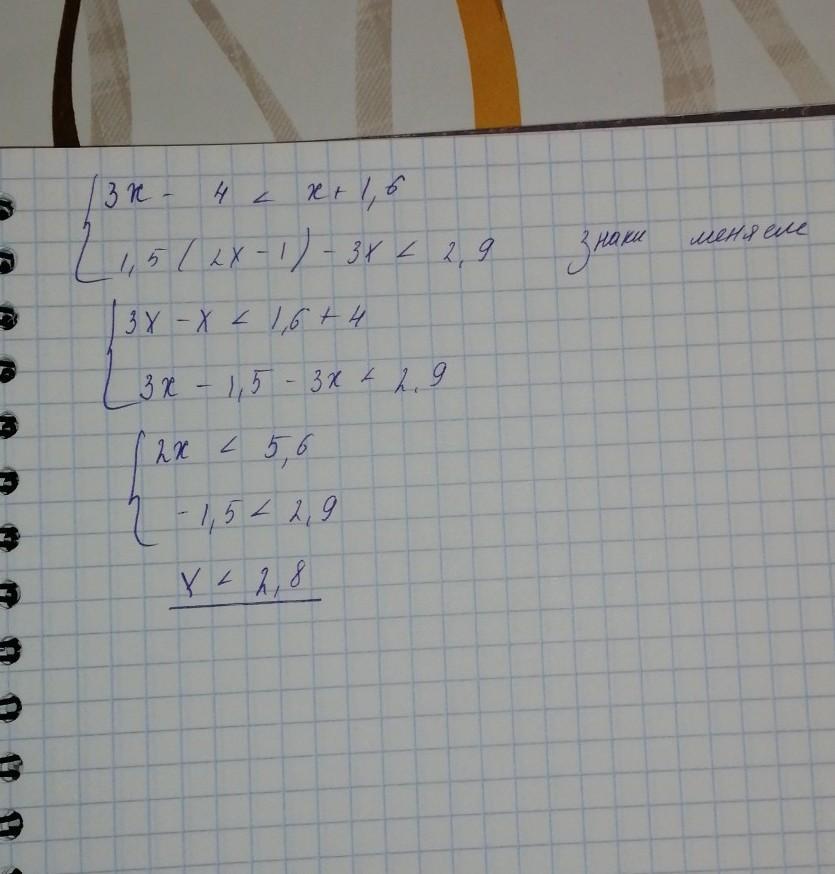 3x - 4 < x + 1,6
1,5 ( 2x - 1 ) - 3x < 2,9 Знаки меняем
3x - x < 1,6 + 4
3x - 1,5 - 3x < 2,9
2x < 5,6
- 1,5 < 2,9
x < 2,8